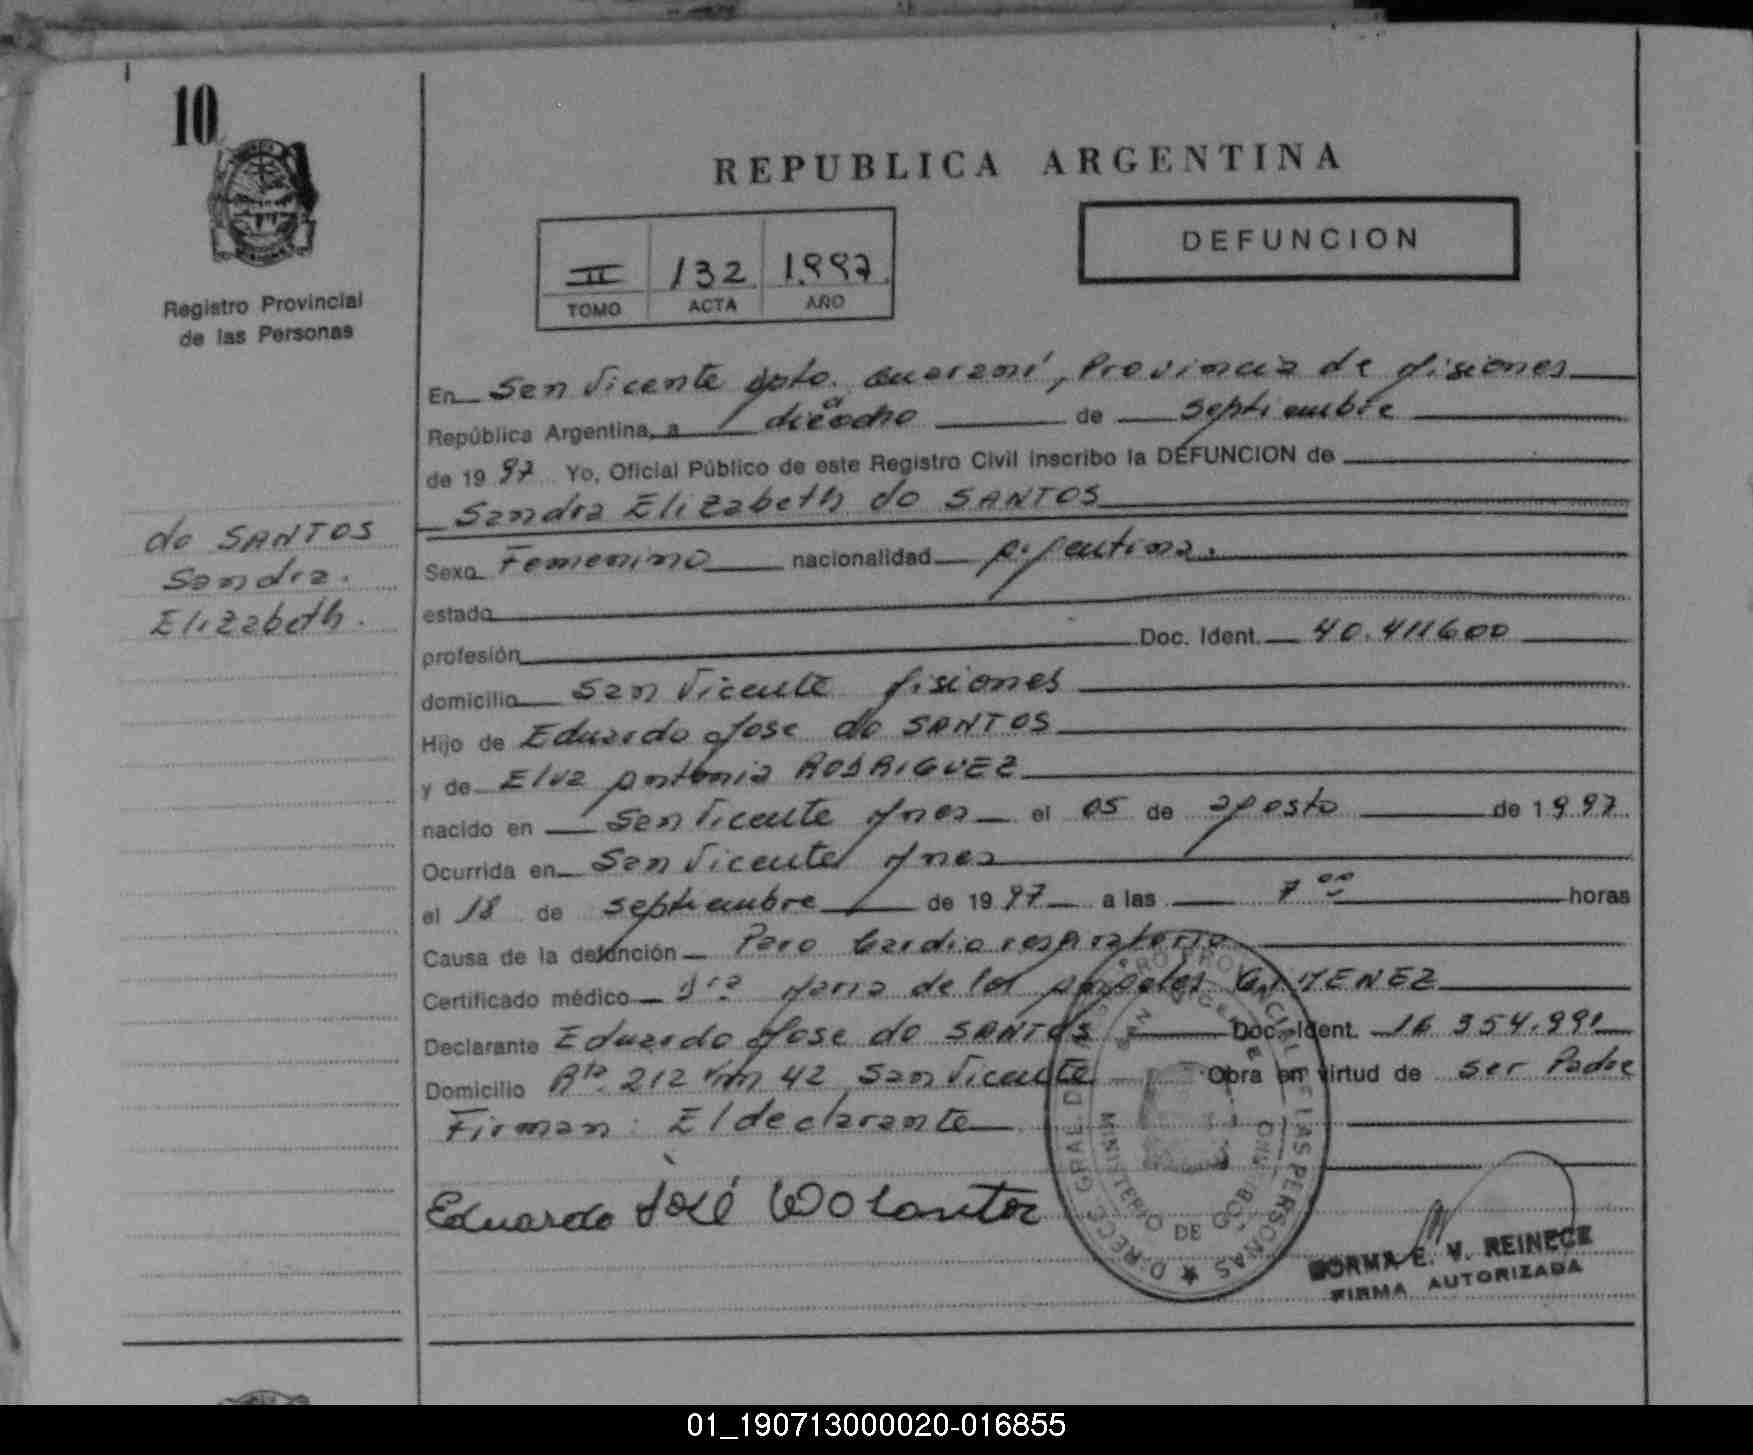 10
REPUBLICA ARGENTINA
DEFUNCION
II 132 1997
TOMO ACTA AÑO
Registro Provincial
de las Personas
En San Vicente Dpto. Guaraní, Provincia de Misiones
República Argentina, a dieciocho de Septiembre
de 19 97 Yo, Oficial Público de este Registro Civil inscribo la DEFUNCION de
Sandra Elizabeth do SANTOS
do SANTOS
Sandra.
Elizabeth.
Sexo Femenino nacionalidad Argentina.
estado
profesión Doc. Ident. 40.411600
domicilio San Vicente Misiones
Hijo de Eduardo Jose do SANTOS
y de Elva Antonia RODRIGUEZ
nacido en San Vicente Mnes el 05 de agosto de 1997
Ocurrida en San Vicente Mnes
el 18 de septiembre de 1997 a las 7 00 horas
Causa de la defunción Paro Cardio respiratorio
Certificado médico Dra Maria de los Angeles GIMENEZ
Declarante Eduardo Jose do SANTOS Doc. Ident. 16 354.991
Domicilio Rta. 212 km 42 San Vicente Obra en virtud de ser Padre
Firman: El declarante
Eduardo José
DIRECC. GRAL. DEL REGISTRO PROVINCIAL DE LAS PERSONAS
SAN VICENTE
MINISTERIO DE GOBIERNO
NORMA E. V. REINECE
FIRMA AUTORIZADA
01_190713000020-016855